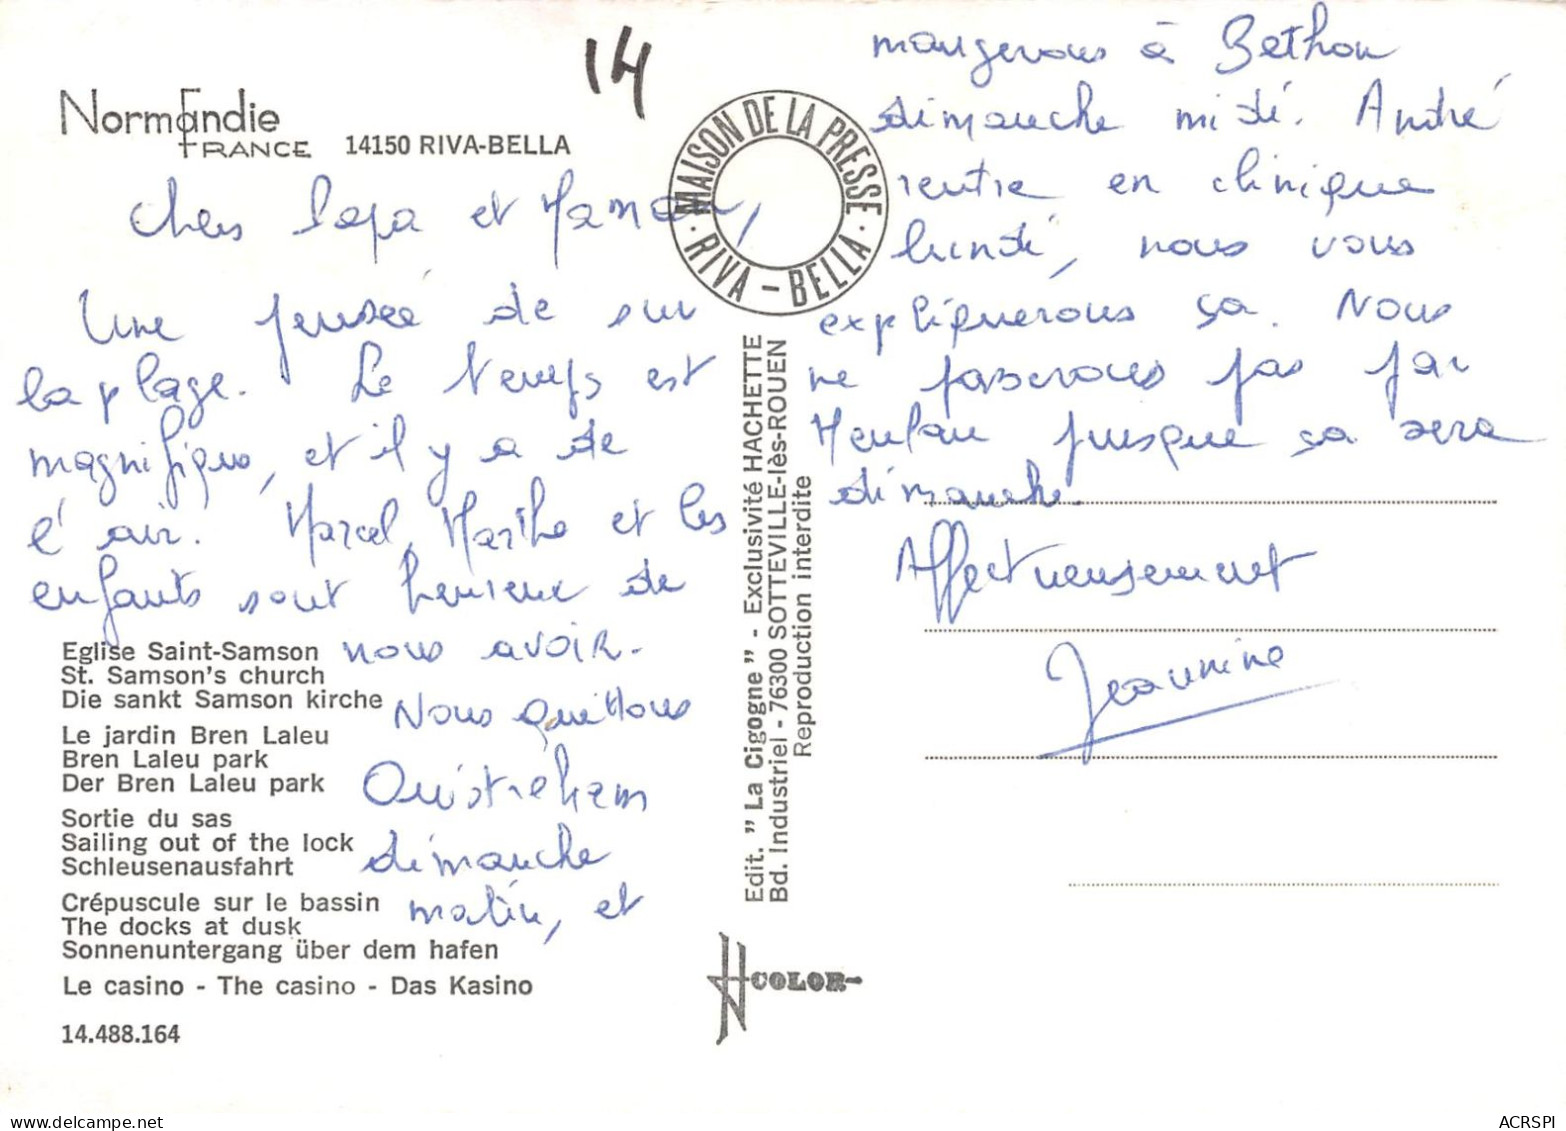 14
Normandie
FRANCE
14150 RIVA-BELLA
MAISON DE LA PRESSE
· RIVA - BELLA ·
Chers Papa et Maman,
Une pensée de sur
la plage. Le temps est
magnifique, et il y a de
l'air. Marcel, Marthe et les
enfants sont heureux de
nous avoir.
Nous quittons
Ouistreham
dimanche
matin, et
Eglise Saint-Samson
St. Samson's church
Die sankt Samson kirche
Le jardin Bren Laleu
Bren Laleu park
Der Bren Laleu park
Sortie du sas
Sailing out of the lock
Schleusenausfahrt
Crépuscule sur le bassin
The docks at dusk
Sonnenuntergang über dem hafen
Le casino - The casino - Das Kasino
14.488.164
Edit. "La Cigogne" - Exclusivité HACHETTE
Bd. Industriel - 76300 SOTTEVILLE-lès-ROUEN
Reproduction interdite
COLOR
mangerons à Bethon
dimanche midi. André
rentre en clinique
lundi, nous vous
expliquerons ça. Nous
ne passerons pas par
Meulan jusque ça sera
dimanche.
Affectueusement
Jeannine
ACRSPI